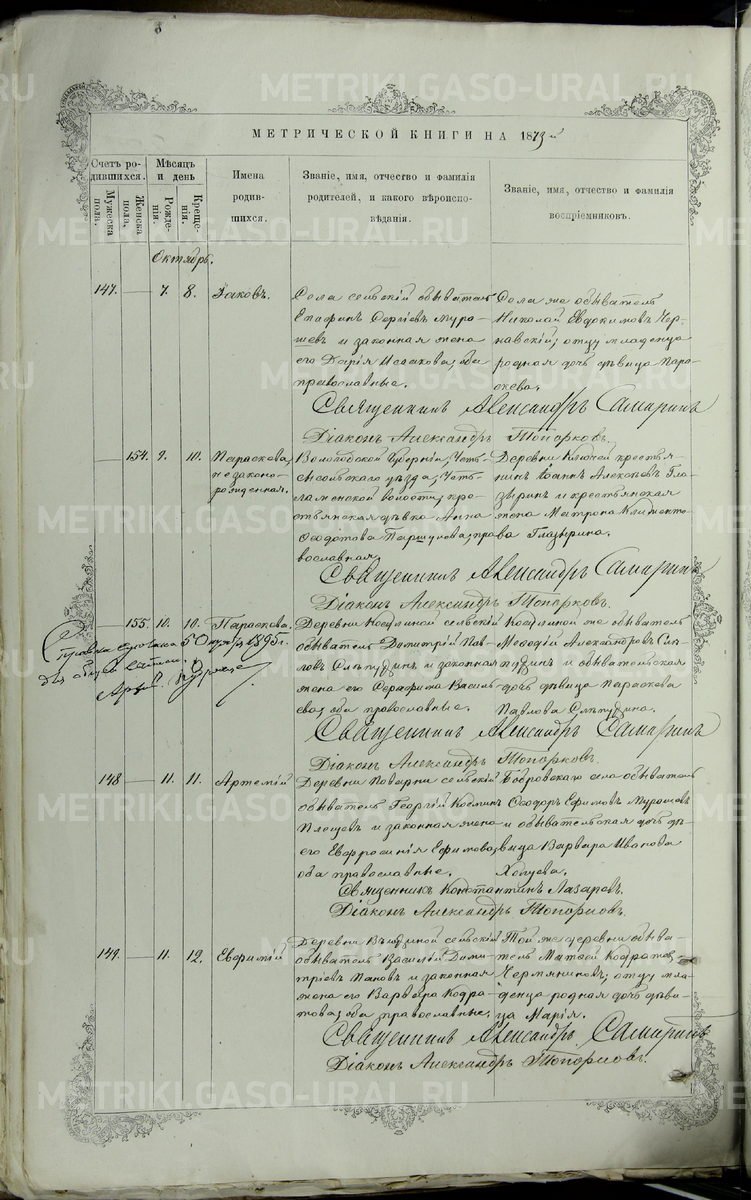 МЕТРИЧЕСКОЙ КНИГИ НА 1873й
Счетъ ро-
дившихся.
Мужеска
пола.
Женска
пола.
Мѣсяцъ
и день
Рожде-
нія.
Креще-
нія.
Имена
родив-
шихся.
Званіе, имя, отчество и фамилія
родителей, и какого вѣроиспо-
вѣданія.
Званіе, имя, отчество и фамилія
воспріемниковъ.
Октябрь.
147. 7. 8. Іаковъ.
Села сельскій обыватель
Сергіевъ Мура-
шевъ и законная жена
его Дарія Исаакова, оба
православные.
Села же обыватель
Николай Евдокимовъ Чер-
навскій; отцу младенца
родная дочь дѣвица Пара-
скева.
Священникъ Александръ Самаринъ
Діаконъ Александръ Топорковъ.
154. 9. 10. Параскева,
незаконо-
рожденная.
Вологодской Губерніи,
уѣзда,
волости, кре-
стьянская дѣвка Анна
Ѳеодотова Паршукова, пра
вославная.
Деревни Ключей крестья-
нинъ Іоаннъ Алексѣевъ Гла-
зыринъ и крестьянская
жена Матрона Климонто-
ва Глазырина.
Священникъ Александръ Самаринъ
Діаконъ Александръ Топорковъ.
155. 10. 10. Параскева.
Деревни Косулиной сельскій
обыватель Димитрій Пав-
ловъ Слѣпухинъ и законная
жена его Серафима Василь-
ева, оба православные.
Косулиной же обыватель
Меѳодій Александровъ Слѣ-
пухинъ и обывательская
дочь дѣвица Параскева
Павлова Слѣпухина.
Справка 5 1895 г.
Священникъ Александръ Самаринъ
Діаконъ Александръ Топорковъ.
148 11. 11. Артемій
Деревни Поварни сельскій
обыватель Георгій Косминъ
Плещевъ и законная жена
его Евфросинія Ефимова,
оба православные.
Бобровскаго села обыватель
Ѳеодоръ Ефимовъ Мурашовъ
и обывательская дочь дѣ-
вица Варвара Иванова
Холуева.
Священникъ Константинъ Лазаревъ.
Діаконъ Александръ Топорковъ.
149. 11. 12. Евфимій
Деревни сельскій
обыватель Василій Дими-
тріевъ Пановъ и законная
жена его Варвара Кодра-
това, оба православные.
Той же деревни обыва-
тель Матѳей Кодратов
Чермяниновъ; отцу мла-
денца родная дочь дѣви-
ца Марія.
Священникъ Александръ Самаринъ
Діаконъ Александръ Топорковъ.
METRIKI.GASO-URAL.RU